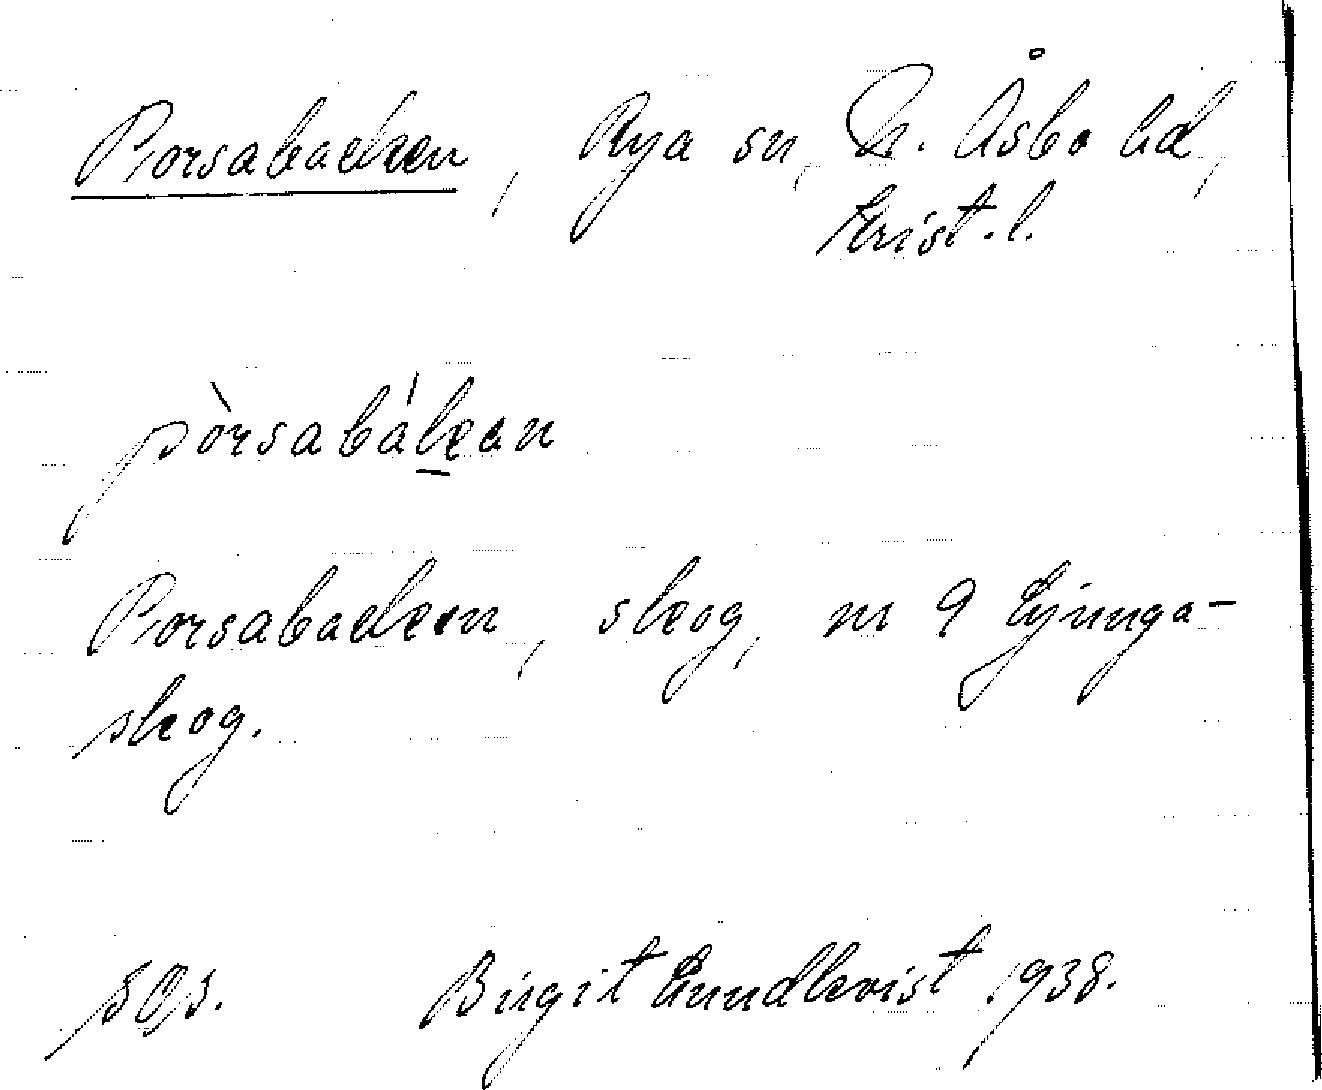 Porsabacken, Rya sn, N. Åsbo hd,
Krist. l.
pòrsabákan
Porsabacken, skog, nr 9 Ljunga-
skog.
Birgit Lundkvist 1938.